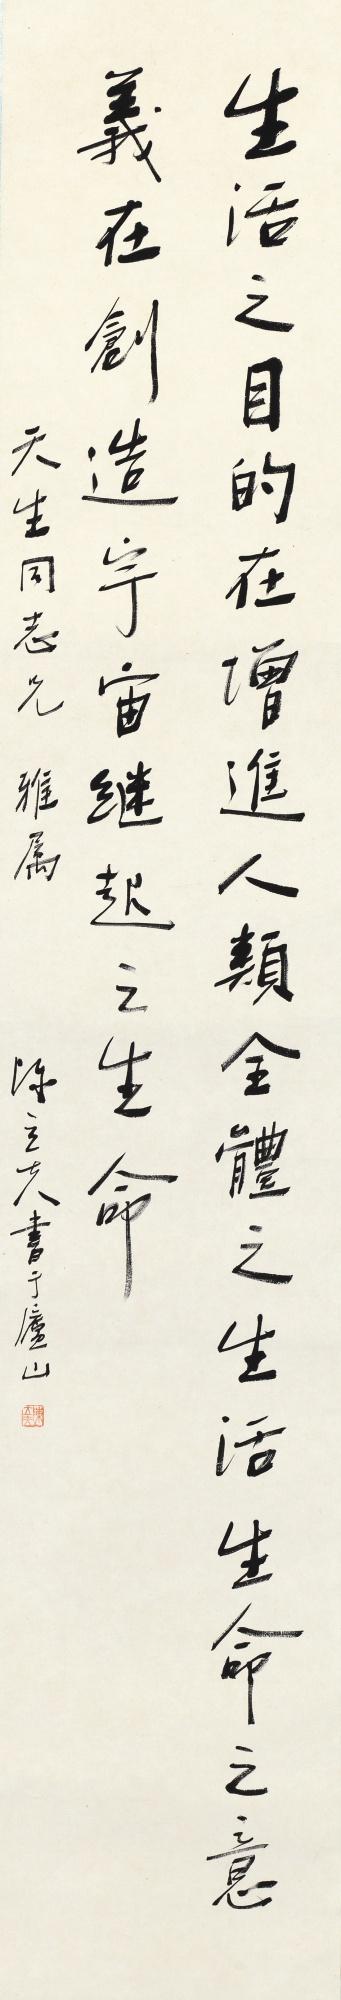 生活之目的在增進人類全體之生活生命之意
義在創造宇宙繼起之生命
天生同志兄 雅属
陳立夫書于廬山